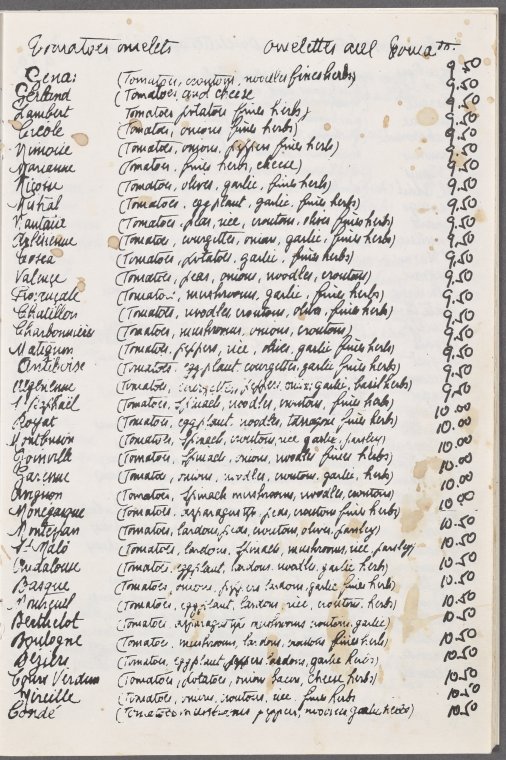 Tomatoes omelets omelettes all Toma
Gena: (Tomatoes, croutons, noodles fines herbs) 9.50
Gertend (Tomatoes and cheese 9.50
Lambert Tomatoes potatoes fines herbs) 9.50
Creole (Tomatoes, onions fines herbs) 9.50
Nimoise (Tomatoes, onions, peppers fines herbs) 9.50
Marianne (Tomatoes, fines herbs, cheese) 9.50
Niçoise (Tomatoes, olives, garlic, fines herbs) 9.50
Mistral (Tomatoes, eggplant, garlic, fines herbs) 9.50
Nantaise (Tomatoes, peas, rice, croutons, olives fines herbs) 9.50
(Tomatoes, courgettes, onion, garlic, fines herbs) 9.50
Cosea (Tomatoes, potatoes, garlic, fines herbs) 9.50
Valence (Tomatoes, peas, onions, noodles, croutons) 9.50
(Tomatoes, mushrooms, garlic, fines herbs) 9.50
Chatillon (Tomatoes, noodles croutons, olives, fines herbs) 9.50
Charbonnière (Tomatoes, mushrooms, onions, croutons) 9.50
Matignon (Tomatoes, peppers, rice, olives, garlic fines herbs) 9.50
Antiboise (Tomatoes. eggplant courgettes, garlic fines herbs) 9.50
Algerienne (Tomatoes, courgettes, peppers, onion, garlic, basil herbs) 9.50
St Raphael (Tomatoes, spinach, noodles, croutons, fines herbs) 10.00
Royat (Tomatoes, eggplant, noodles, tarragon fines herbs) 10.00
Montbrison (Tomatoes, spinach, croutons, rice garlic, parsley) 10.00
Joinville (Tomatoes, spinach, onions, noodles fines herbs) 10.00
Garenne (Tomatoes, onions, noodles, croutons, garlic, herbs) 10.00
Avignon (Tomatoes, spinach mushrooms, noodles, croutons) 10.50
Monegasque (Tomatoes, asparagus tip, peas, croutons fines herbs) 10.50
Montespan (Tomatoes, lardons, peas, croutons, olives, parsley) 10.50
St Malo (Tomatoes, lardons, spinach, mushrooms, rice, parsley) 10.50
Andalouse (Tomatoes, eggplant, lardons, noodles, garlic herbs) 10.50
Basque (Tomatoes, onions, peppers lardons, garlic fines herbs) 10.50
Montreuil (Tomatoes, eggplant, lardons, rice, croutons, herbs) 10.50
Berthelot (Tomatoes, asparagus tip mushrooms croutons, garlic) 10.50
Boulogne (Tomatoes, mushrooms, lardons, croutons fines herbs) 10.50
Beziers (Tomatoes, eggplant, peppers lardons, garlic herbs) 10.50
Verdun (Tomatoes, potatoes, onion bacon, cheese herbs) 10.50
Mireille (Tomatoes, onions, croutons, rice, fines herbs 10.50
Condé (Tomatoes mushrooms peppers, noodles garlic herbs) 10.50